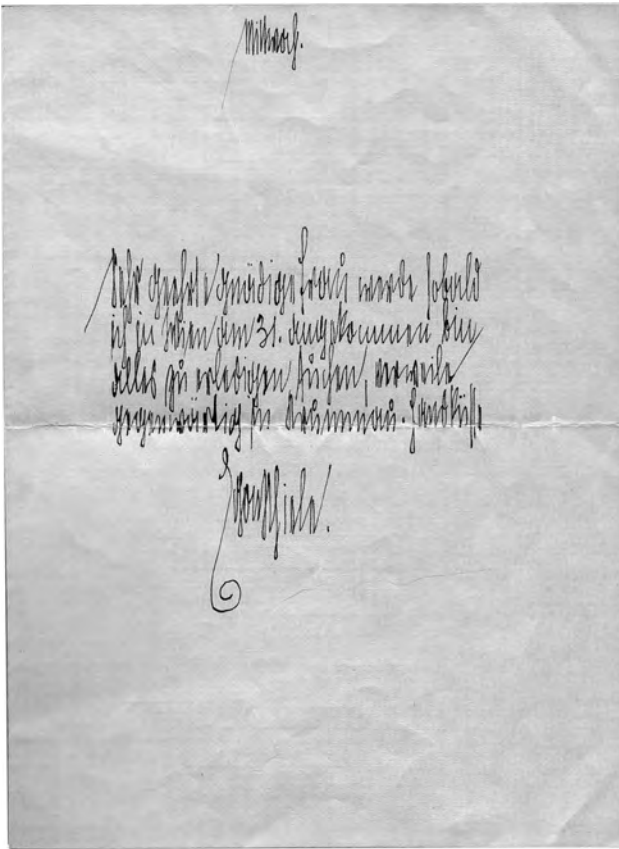 Mittwoch.
Sehr geehrte gnädige Frau werde sobald
ich in Wien am 31. angekommen bin
alles zu erledigen suchen, verweile
gegenwärtig in Krummau. Handküsse
Egon Schiele.